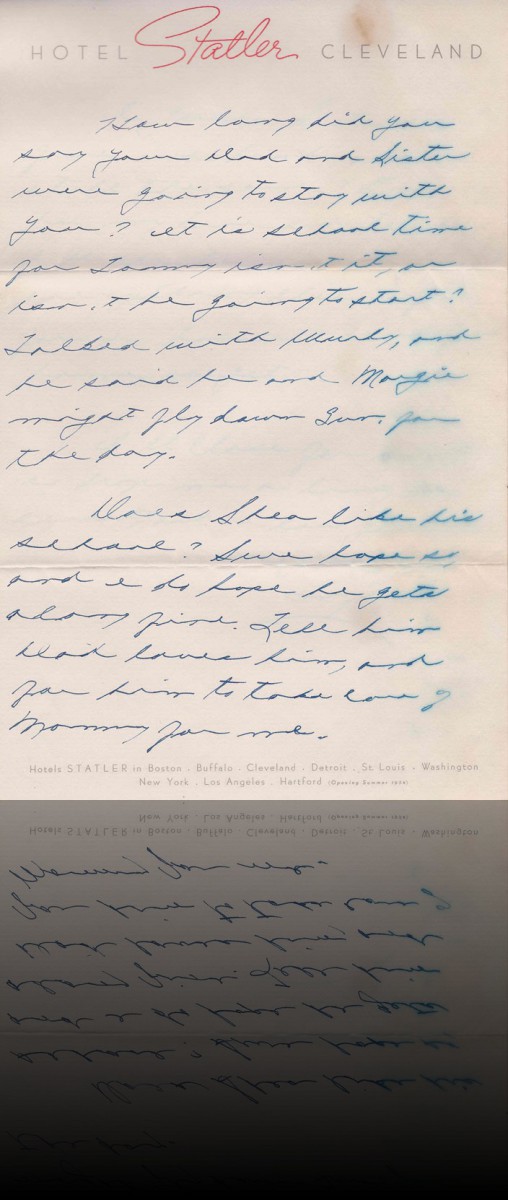 HOTEL Statler CLEVELAND
How long did you
say your Dad and Sister
were going to stay with
you? It is school time
for Tommy isn't it, or
isn't he going to start?
Talked with Murly, and
he said he and Margie
might fly down Sun. for
the day.
Does Shea like his
school? Sure hope so,
and I do hope he gets
along fine. Tell him
Dad loves him, and
for him to take care of
Mommy for me.
Hotels STATLER in Boston · Buffalo · Cleveland · Detroit · St. Louis · Washington
New York · Los Angeles · Hartford (Opening Summer 1954)